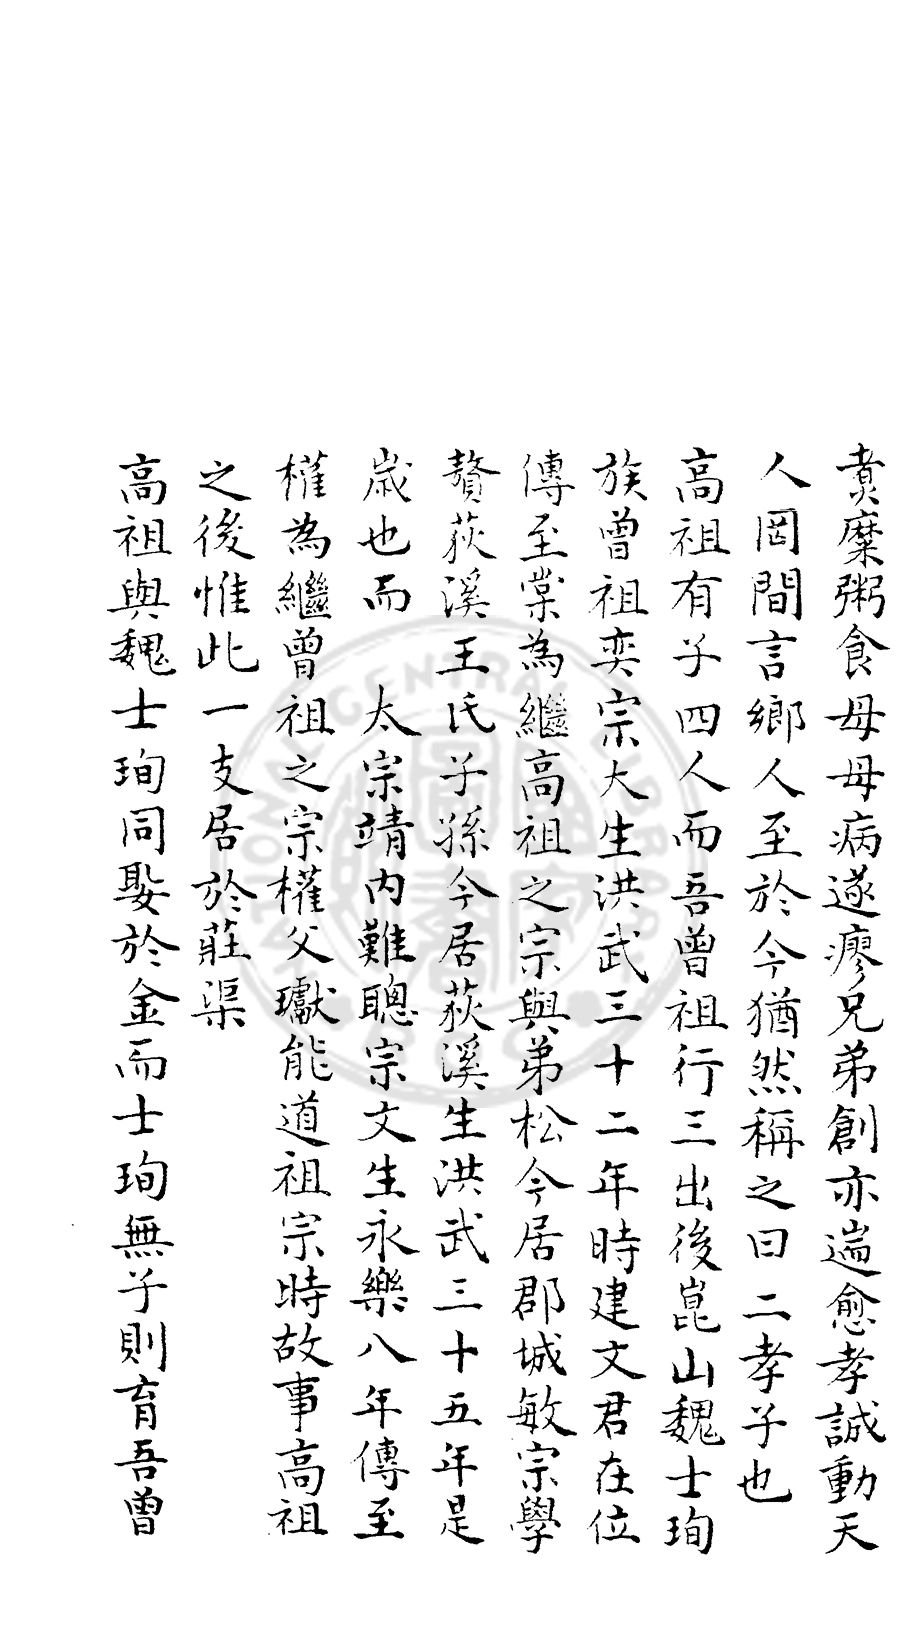 煑糜粥食母母病遂瘳兄弟創亦遄愈孝誠動天
人罔間言鄉人至於今猶然稱之曰二孝子也
高祖有子四人而吾曾祖行三出後崑山魏士珣
族曾祖奕宗大生洪武三十二年時建文君在位
傳至棠為繼高祖之宗與弟松今居郡城敏宗學
贅荻溪王氏子孫今居荻溪生洪武三十五年是
歲也而 太宗靖內難聰宗文生永樂八年傳至
權為繼曾祖之宗權父瓛能道祖宗時故事高祖
之後惟此一支居於莊渠
高祖與魏士珣同娶於金而士珣無子則育吾曾
NATIONAL CENTRAL LIBRARY